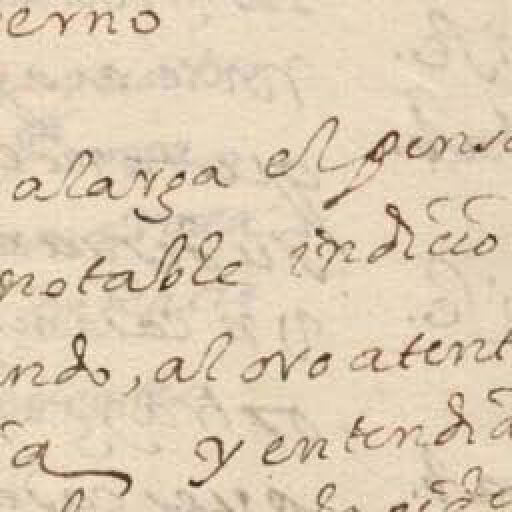 erno
alarga el pens
notable indicio
ndo, al oro atent
ia y entendia